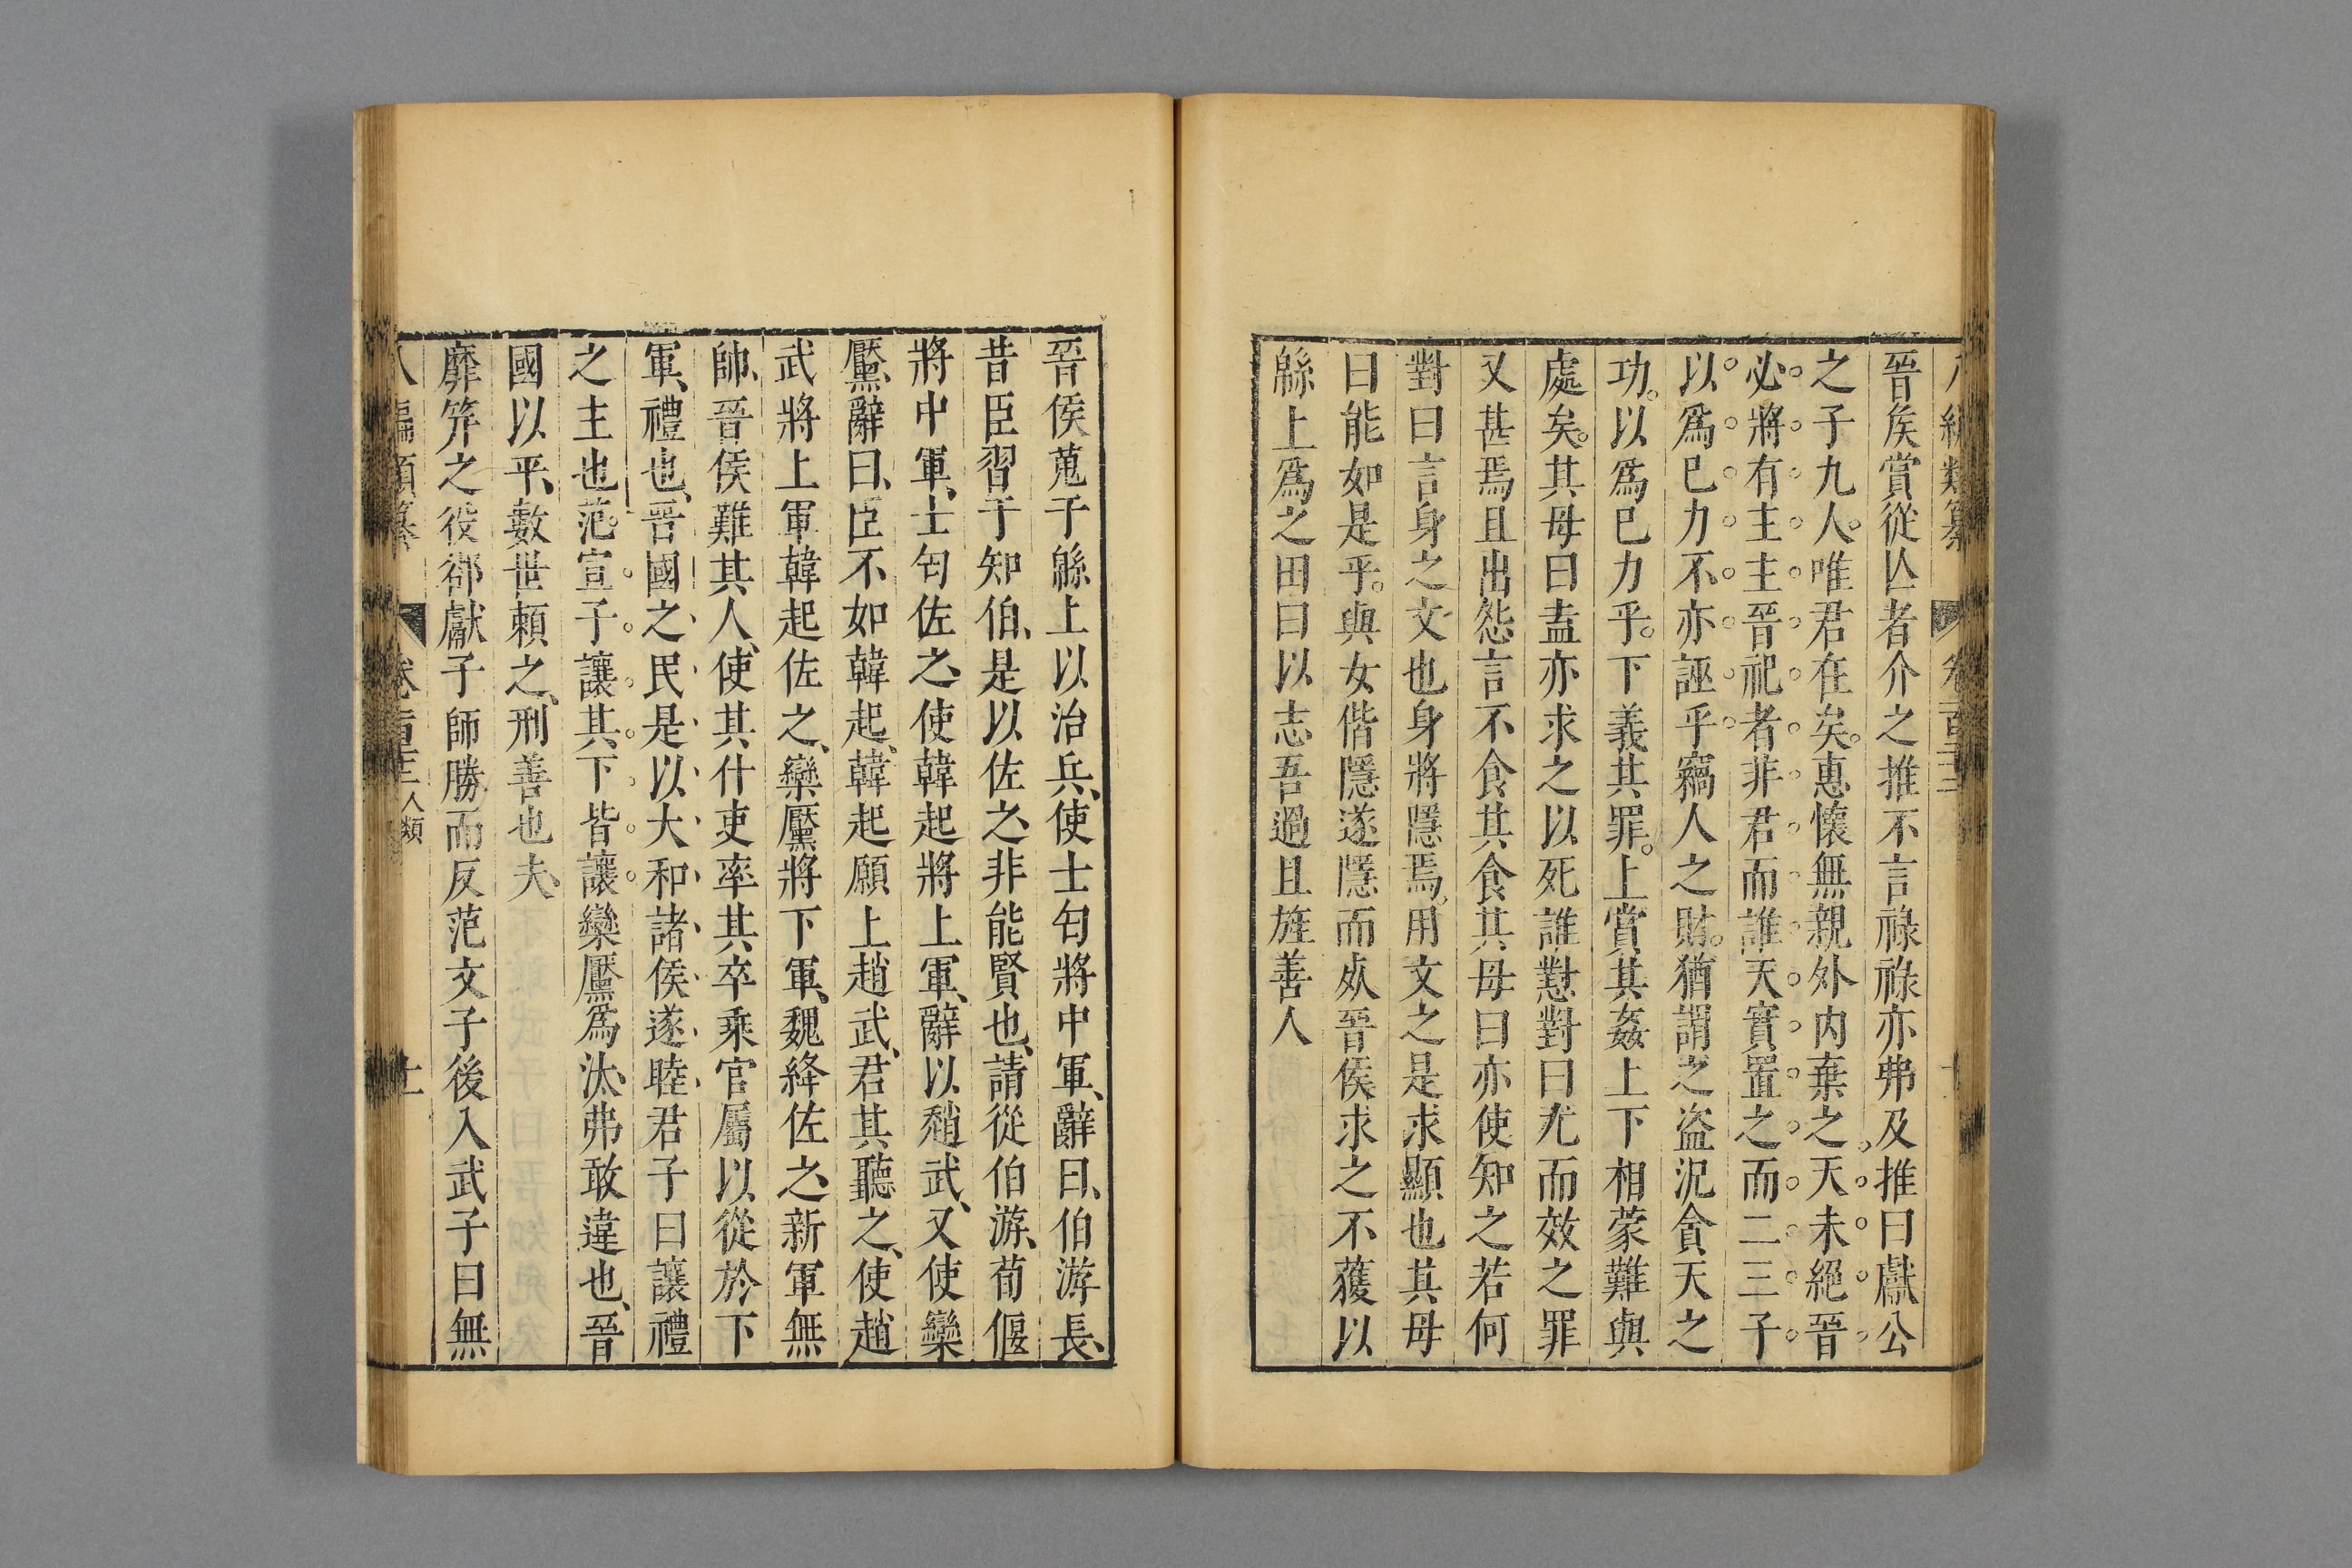 晉矦賞從亾者介之推不言祿祿亦弗及推曰獻公
之子九人唯君在矣惠懷無親外內棄之天未絕晉
必將有主主晉祀者非君而誰天實置之而二三子
以爲巳力不亦誣乎竊人之財猶謂之盗況貪天之
功以爲巳力乎下義其罪上賞其姦上下相蒙難與
處矣其母曰盍亦求之以死誰懟對曰尤而效之罪
又甚焉且出怨言不食其食其母曰亦使知之若何
對曰言身之文也身將隱焉用文之是求顯也其母
曰能如是乎與女偕隱遂隱而死晉侯求之不獲以
緜上爲之田曰以志吾過且旌善人
晉侯蒐于緜上以治兵、使士匄將中軍、辭曰、伯游長、
昔臣習于知伯、是以佐之、非能賢也、請從伯游、荀偃
將中軍、士匄佐之、使韓起將上軍、辭以趙武、又使欒
黶、辭曰、臣不如韓起、韓起願上趙武、君其聽之、使趙
武將上軍韓起佐之、欒黶將下軍、魏絳佐之、新軍無
帥、晉侯難其人、使其什吏率其卒乘官屬以從於下
軍、禮也、晉國之民是以大和諸侯遂睦君子曰讓禮
之主也范宣子讓其下皆讓欒黶爲汰、弗敢違也、晉
國以平、數世賴之、刑善也夫、
靡筓之役郤獻子師勝而反范文子後入武子曰無
八編類纂 卷 人類